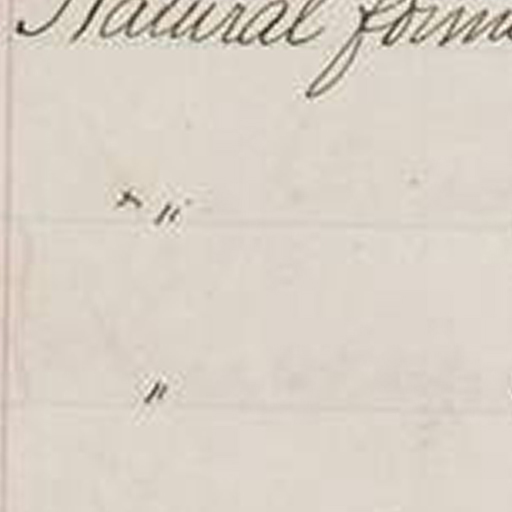 Natural form
"
"